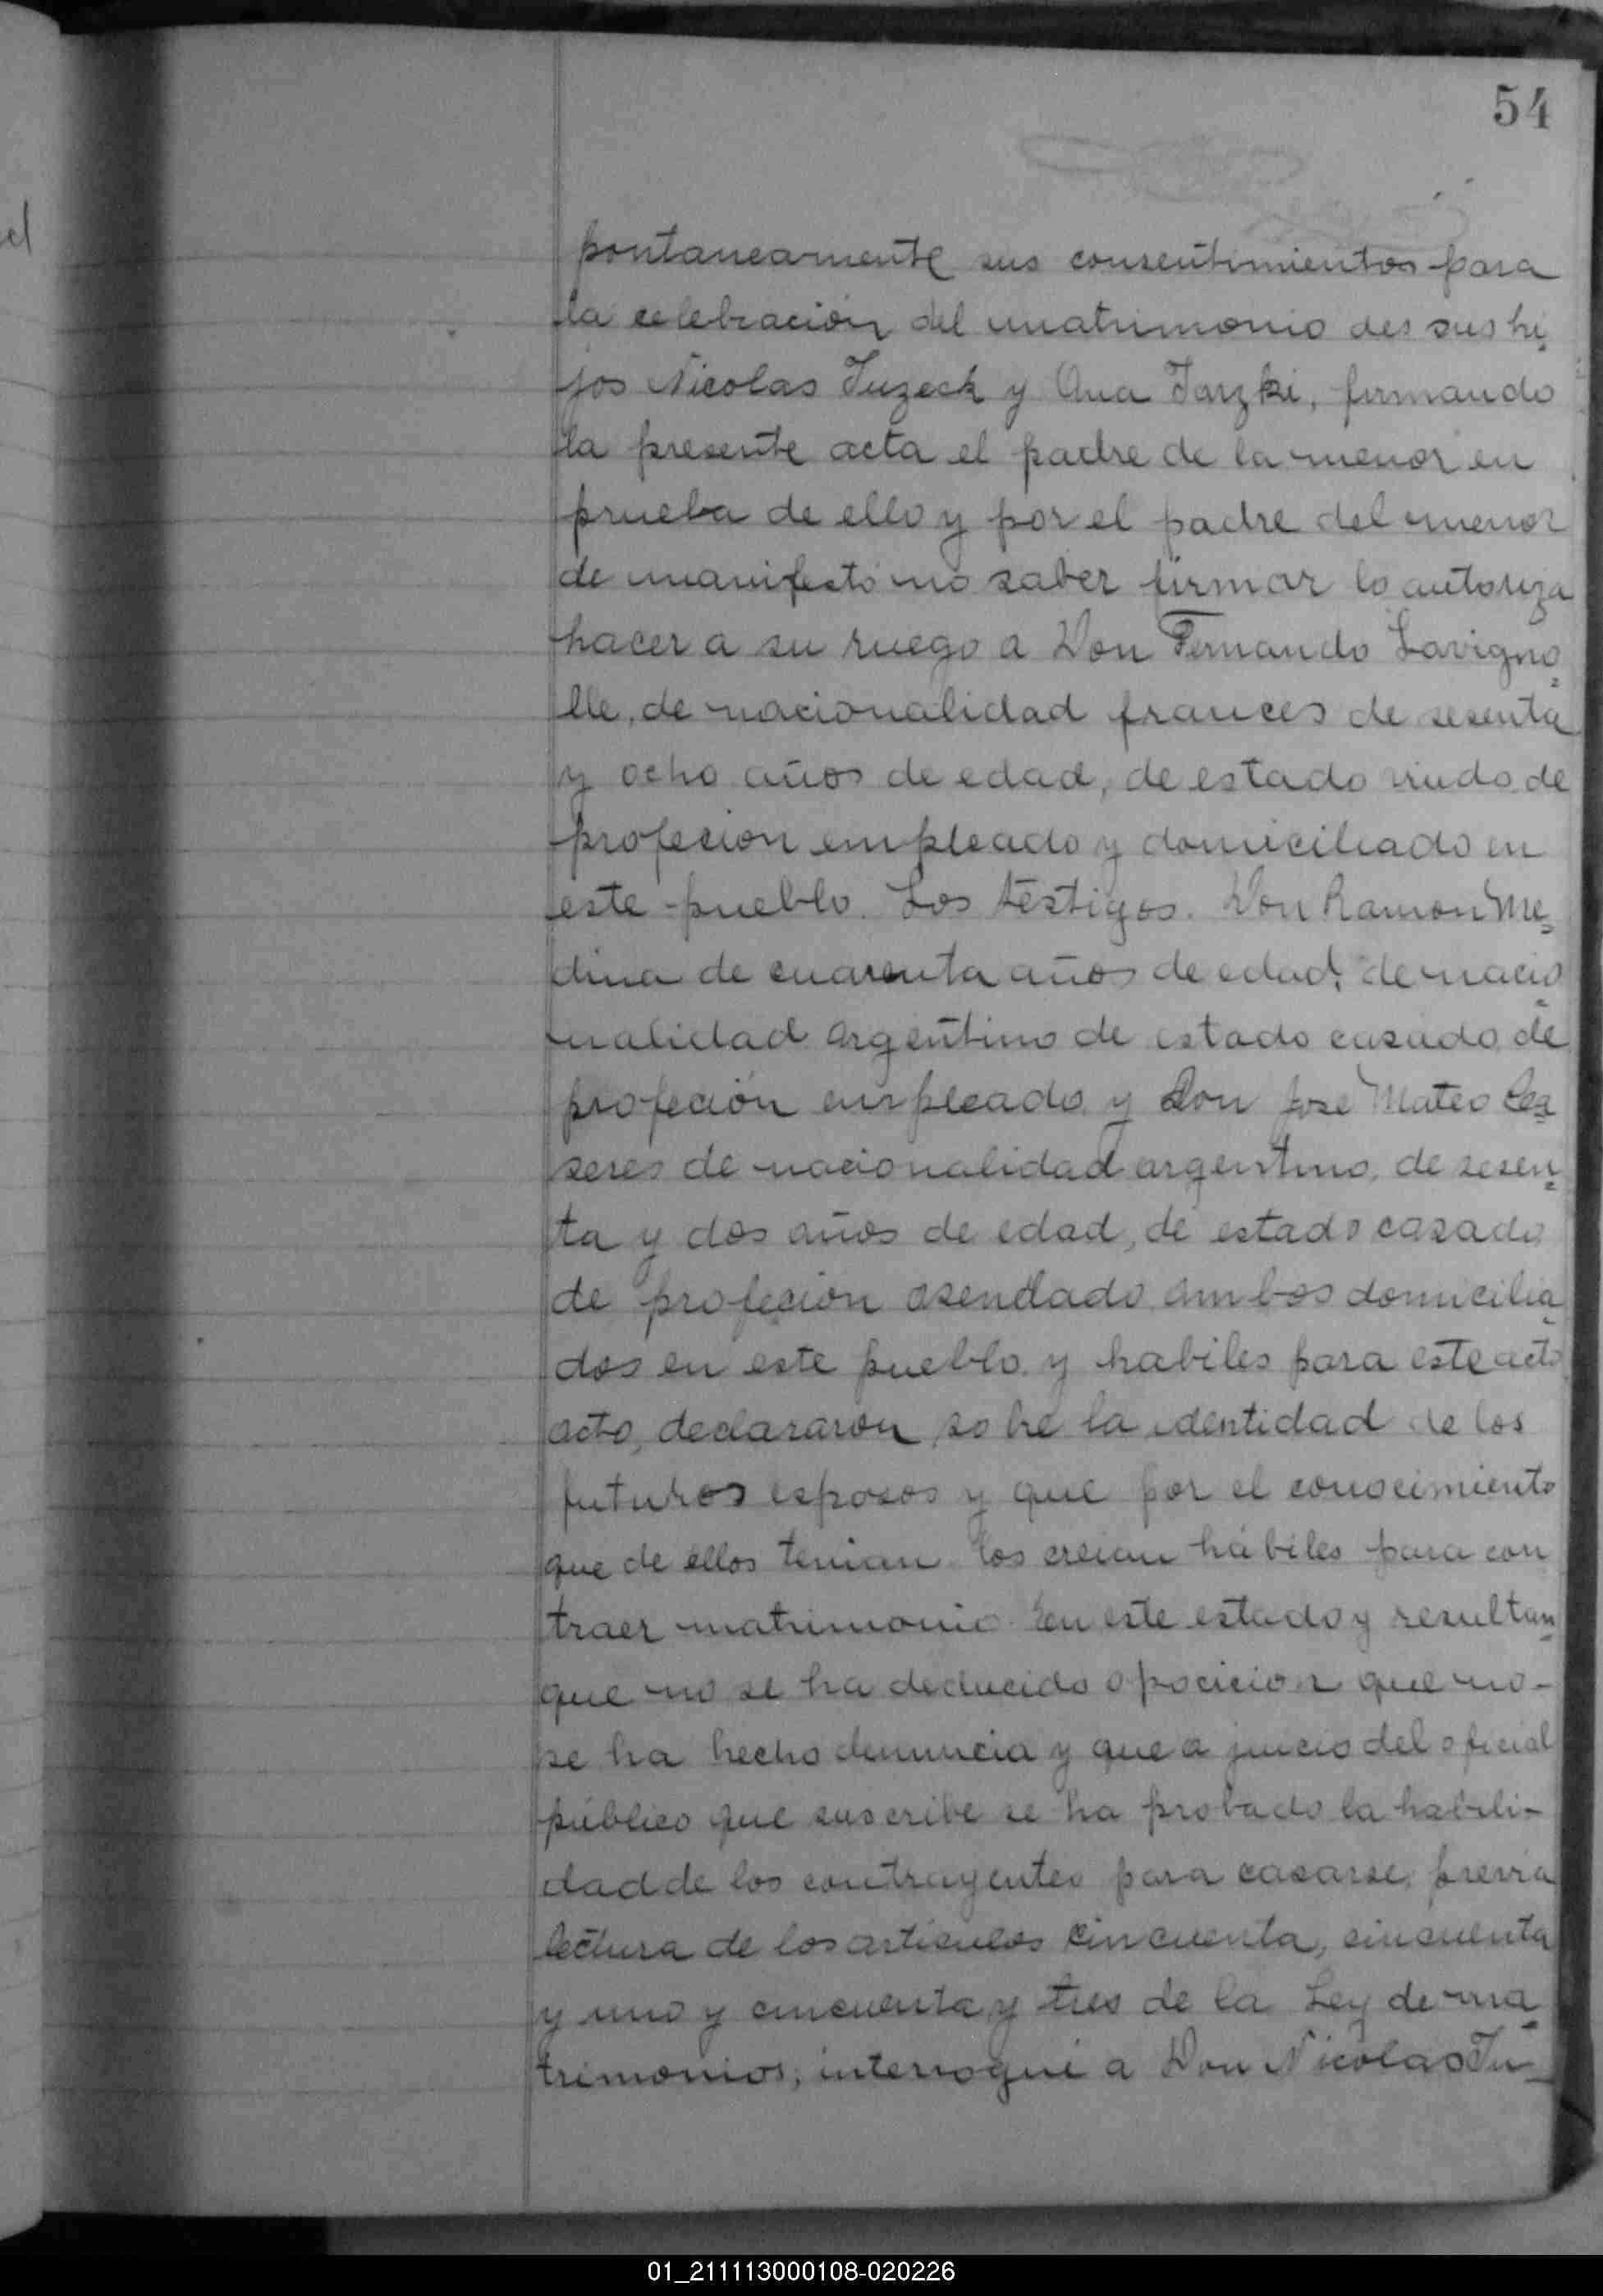 54
pontaneamente sus consentimientos para
la celebración del matrimonio des sus hi
jos Nicolas Tuzeck y Ana Tarzki, firmando
la presente acta el padre de la menor en
prueba de ello y por el padre del menor
de manifestó no saber firmar lo autoriza
hacer a su ruego a Don Fernando Lavigno
lle, de nacionalidad frances de sesenta
y ocho años de edad, de estado viudo de
profecion empleado y domiciliado en
este pueblo. Los testigos. Don Ramon Me
dina de cuarenta años de edad, de nacio
nalidad argentino de estado casado de
profeción empleado y Don José Mateo
seres de nacionalidad argentino, de sesen
ta y dos años de edad, de estado casado
de profecion asendado ambos domicilia
dos en este pueblo y habiles para este acto
acto, declararon sobre la identidad de los
futuros esposos y que por el conocimiento
que de ellos tenian los creian hábiles para con
traer matrimonio. En este estado y resultan
que no se ha deducido opocicion que no-
se ha hecho denuncia y que a juicio del oficial
público que suscribe se ha probado la habili-
dad de los contrayentes para casarse, previa
lectura de los articulos cincuenta, cincuenta
y uno y cincuenta y tres de la Ley de ma
trimonios, interrogué a Don Nicolas Tu-
01_211113000108-020226